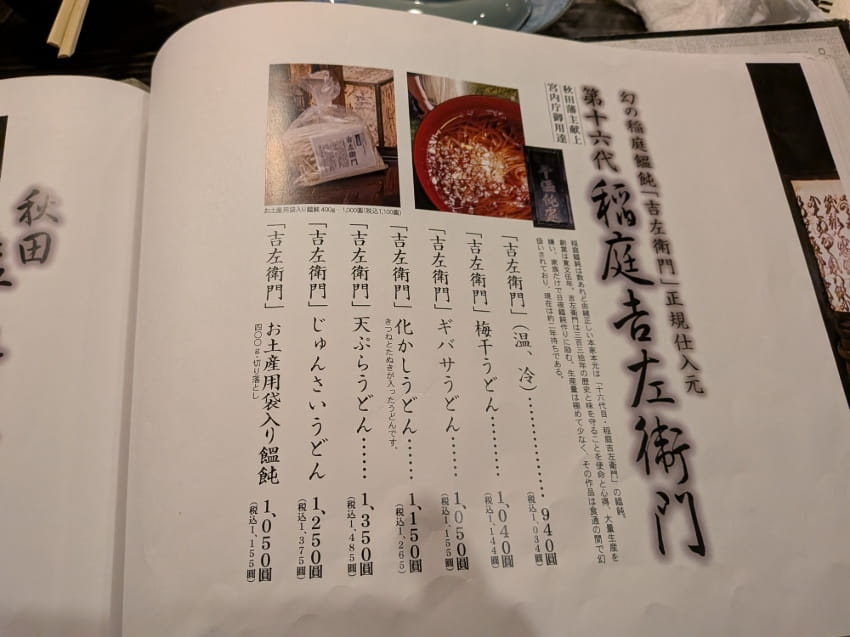 幻の稲庭饂飩「吉左衛門」正規仕入元
秋田藩主献上
宮内庁御用達
第十六代 稲庭吉左衛門
稲庭饂飩は数あれど由緒正しい本家本元は「十六代目・稲庭吉左衛門」の饂飩。
創業は寛文伍年。吉左衛門は三百三拾年の歴史と味を守ることを使命と心得、大量生産を
嫌い、家族だけで日夜饂飩作りに励む。生産量は極めて少なく、その作品は食通の間で幻
扱いされており、現在は約二年待ちである。
「吉左衛門」(温、冷)……………940圓
(税込1,034圓)
「吉左衛門」梅干うどん………1,040圓
(税込1,144圓)
「吉左衛門」ギバサうどん……1,050圓
(税込1,155圓)
「吉左衛門」化かしうどん……1,150圓
きつねとたぬきが入ったうどんです。
(税込1,265)
「吉左衛門」天ぷらうどん……1,350圓
(税込1,485圓)
「吉左衛門」じゅんさいうどん 1,250圓
(税込1,375圓)
「吉左衛門」お土産用袋入り饂飩 1,050圓
四〇〇g・切り落とし
(税込1,155圓)
お土産用袋入り饂飩 400g…1,000圓(税込1,100圓)
吉左衛門
秋田